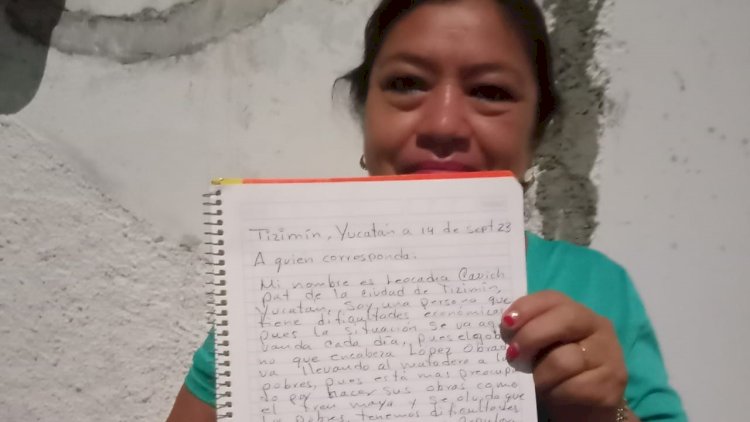 Tizimín, Yucatán a 14 de sept 23
A quien corresponda.
Mi nombre es Leocadia Cavich
pat de la ciudad de Tizimín,
Yucatán, soy una persona que
tiene dificultades económicas
pues la situación se va agra
vando cada día, pues el gobi
no que encabeza López Obrad
va llevando al matadero a l
pobres, pues está más preocupa
do por hacer sus obras como
el tren maya y se olvida que
los pobres tenemos dificultades